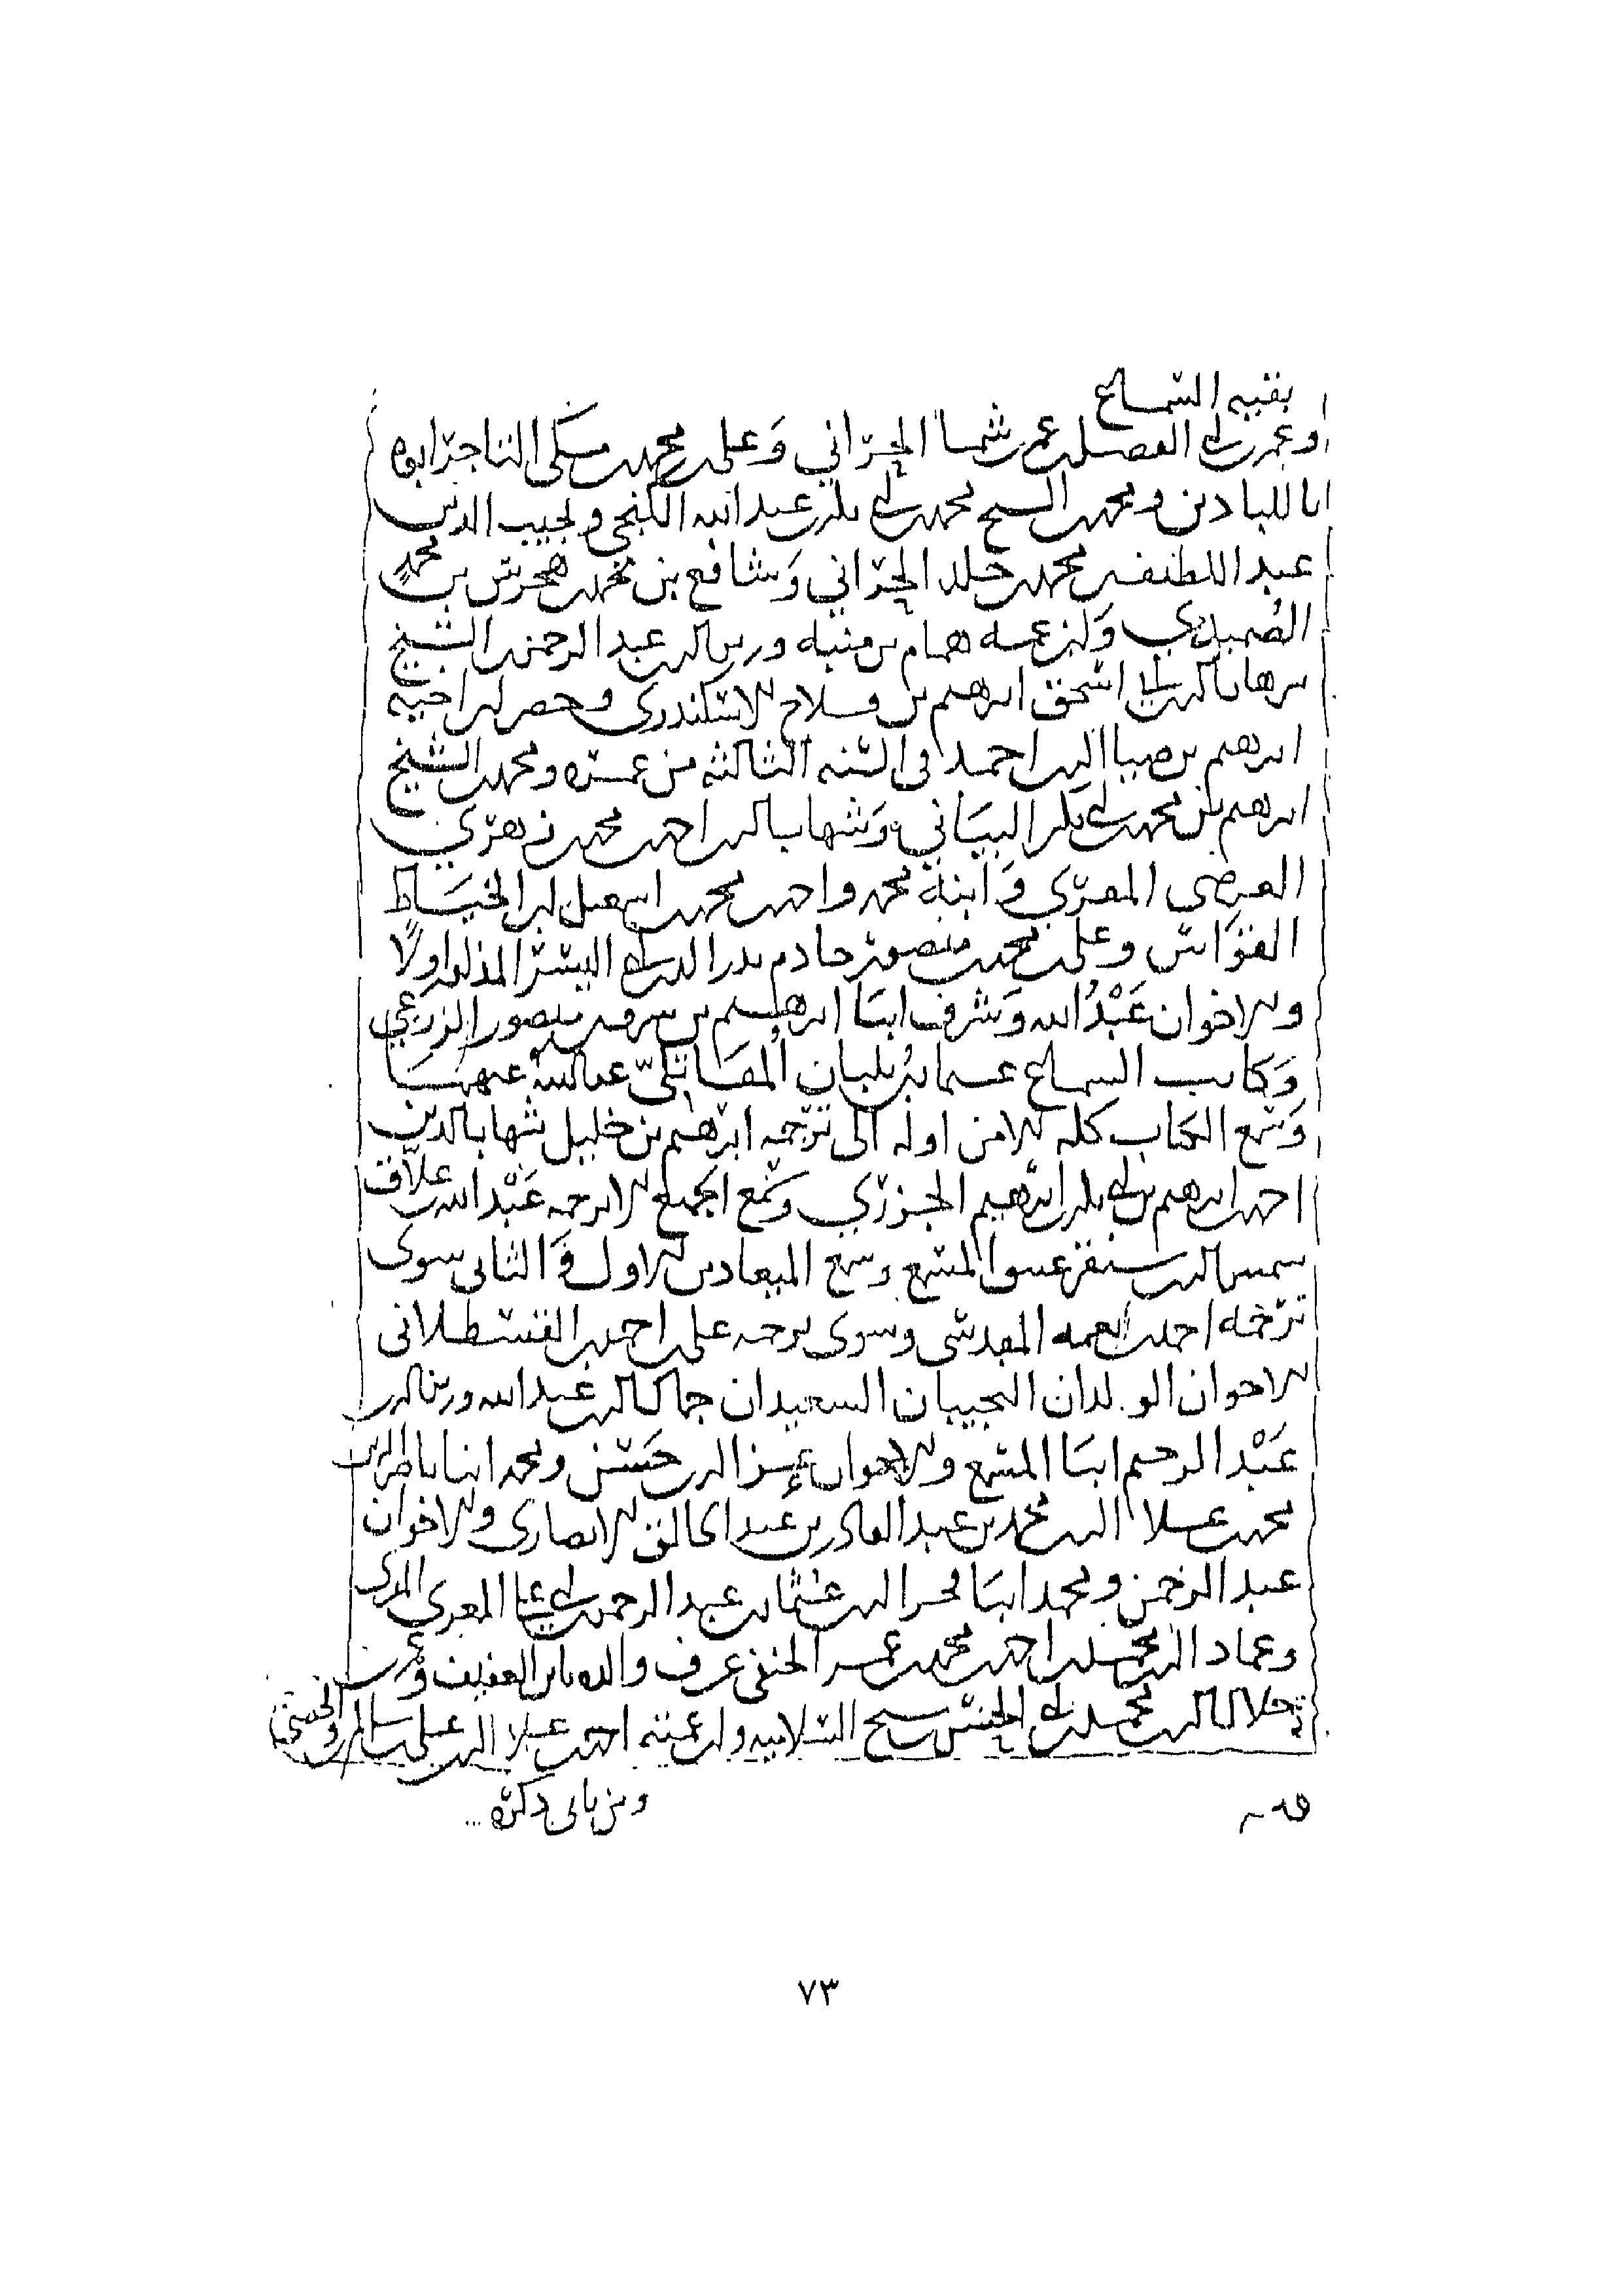 بقيه السماع
وعمر بن ابي الفضل بن عمر بن شما الحراني وعلي بن محمد بن مكي التاجر ابوه
باللبادين ومحمد بن الشيخ محمد بن ابي بكر بن عبد الله الكنجي ونجيب الدين
عبد اللطيف بن محمد بن خلد الحراني وشافع بن محمد بن هجرس بن محمد
الصميدي وابن عمه همام بن منبه وزين الدين عبد الرحمن بن الشيخ
برهان الدين ابي اسحق ابرهيم بن فلاح الاسكندري وحضر ابن اخيه
ابرهيم بن ضيا الدين احمد في السنه الثالثه من عمره ومحمد بن الشيخ
ابرهيم بن محمد بن ابي بكر البياني وشهاب الدين احمد بن محمد بن
العرضي المقري وابنه محمد واحمد بن محمد بن اسمعيل ابن الخياط
القواس وعلي بن محمد بن منصور خادم بدر الدين ابي اليسر المذكور اولا
والاخوان عبد الله وشرف ابنا ابرهيم بن منصور الزرعي
وكاتب السماع عثمان بن بلبان المقاتلي عفا الله عنهما
وسمع الكتاب كله الا من اوله الى ترجمه ابرهيم بن خليل شهاب الدين
احمد بن ابرهيم بن ابي بكر بن ابرهيم الجزري وسمع الجميع الا ترجمه عبد الله بن علاق
شمس الدين سنقر المسمع وسمع الميعادين الاول والثاني سوى
ترجمه احمد بن نعمه المقدسي وسوى ترجمه علي بن احمد بن القسطلاني
الاخوان الولدان النجيبان السعيدان جمال الدين عبد الله وزين الدين
عبد الرحيم ابنا المسمع والاخوان عز الدين حسن ومحمد ابنا ناصر الدين
محمد بن علا الدين محمد بن عبد القادر بن عبد الخالق الانصاري والاخوان
عبد الرحمن ومحمد ابنا فخر الدين عثمان بن عبد الرحمن بن ابي علي المعري
وعماد الدين محمد بن احمد بن محمد بن عمر الحنفي عرف والده بابن العفيف وعمر بن
جلال الدين محمد بن ابي الحسن شيخ السلاميه وابن عمته احمد بن علا الدين علي بن الحسني
ومن ياتي ذكره ...
٧٣